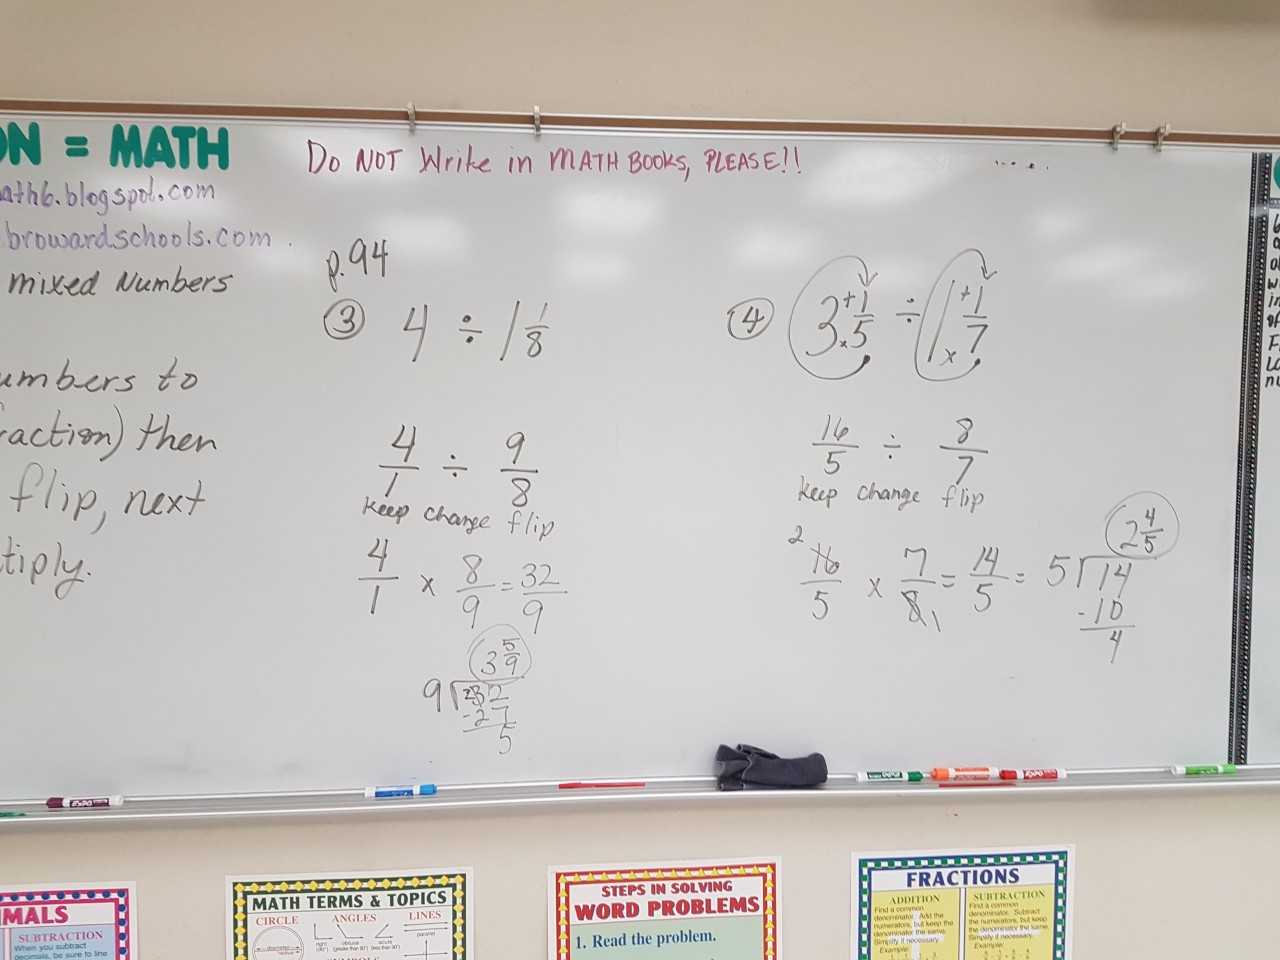 ON = MATH
ath6.blogspot.com
browardschools.com
mixed Numbers
umbers to
raction) then
flip, next
tiply.
Do NOT Write in MATH BOOKS, PLEASE!!
p.94
③ 4 ÷ 1 1/8
4/1 ÷ 9/8
keep change flip
4/1 × 8/9 = 32/9
3 5/9
9 32
-27
5
④ 3 + 1/5 ÷ 1 + 1/7
× ×
16/5 ÷ 8/7
keep change flip
2 1
16/5 × 7/8 = 14/5 = 5 14
2 4/5
-10
4
EXPO
EXPO
MALS
SUBTRACTION
When you subtract
decimals, be sure to line
MATH TERMS & TOPICS
CIRCLE ANGLES LINES
right obtuse acute
parallel
STEPS IN SOLVING
WORD PROBLEMS
1. Read the problem.
FRACTIONS
ADDITION
Find a common
denominator. Add the
numerators, but keep the
denominator the same.
Simplify if necessary.
Example:
SUBTRACTION
Find a common
denominator. Subtract
the numerators, but keep
the denominator the same.
Simplify if necessary.
Example: